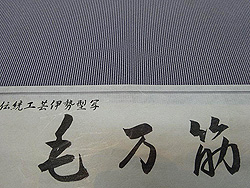 伝統工芸伊勢型写
毛万筋